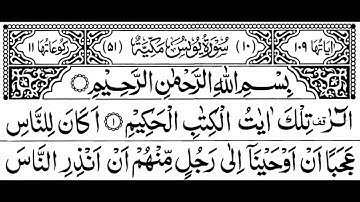 اٰیَاتُهَا ۱۰۹ (۱۰) سُوْرَةُ یُوْنُسَ مَكِّیَّةٌ (۵۱) رُكُوْعَاتُهَا ۱۱
بِسْمِ اللّٰهِ الرَّحْمٰنِ الرَّحِیْمِ
الٓرٰ قف تِلْكَ اٰیٰتُ الْكِتٰبِ الْحَكِیْمِ ۱ اَكَانَ لِلنَّاسِ
عَجَبًا اَنْ اَوْحَیْنَاۤ اِلٰى رَجُلٍ مِّنْهُمْ اَنْ اَنْذِرِ النَّاسَ